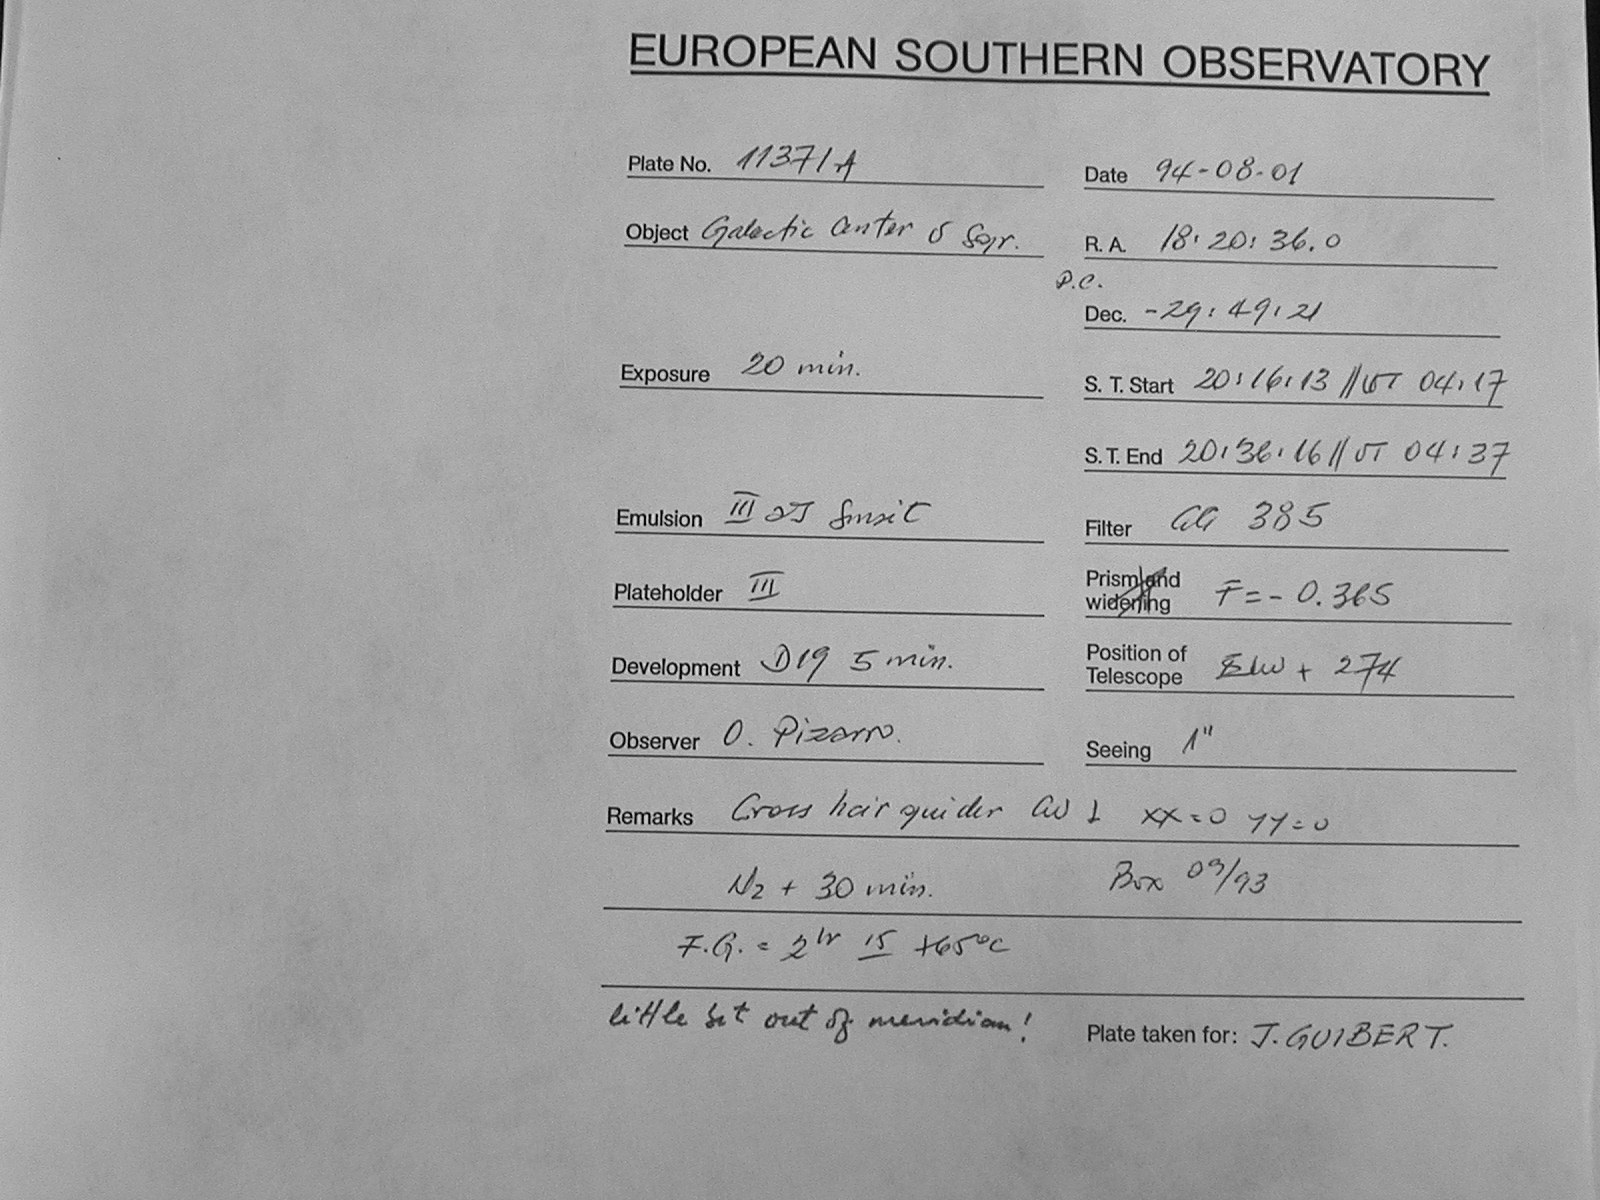 EUROPEAN SOUTHERN OBSERVATORY
Plate No. 11371A Date 94-08-01
Object Galactic Center δ Sgr. R. A. 18:20:36.0
P.C.
Dec. -29:49:21
Exposure 20 min. S. T. Start 20:16:13 // UT 04:17
S. T. End 20:36:16 // UT 04:37
Emulsion III aJ Filter GG 385
Plateholder III Prism and widening F = - 0.365
Development D19 5 min. Position of Telescope + 274
Observer O. Pizarro. Seeing 1"
Remarks Cross hair guider xx = 0 yy = 0
N2 + 30 min. Box 09/93
F.G. = 2hr 15 +65°C
little bit out of meridian! Plate taken for: J. GUIBERT.